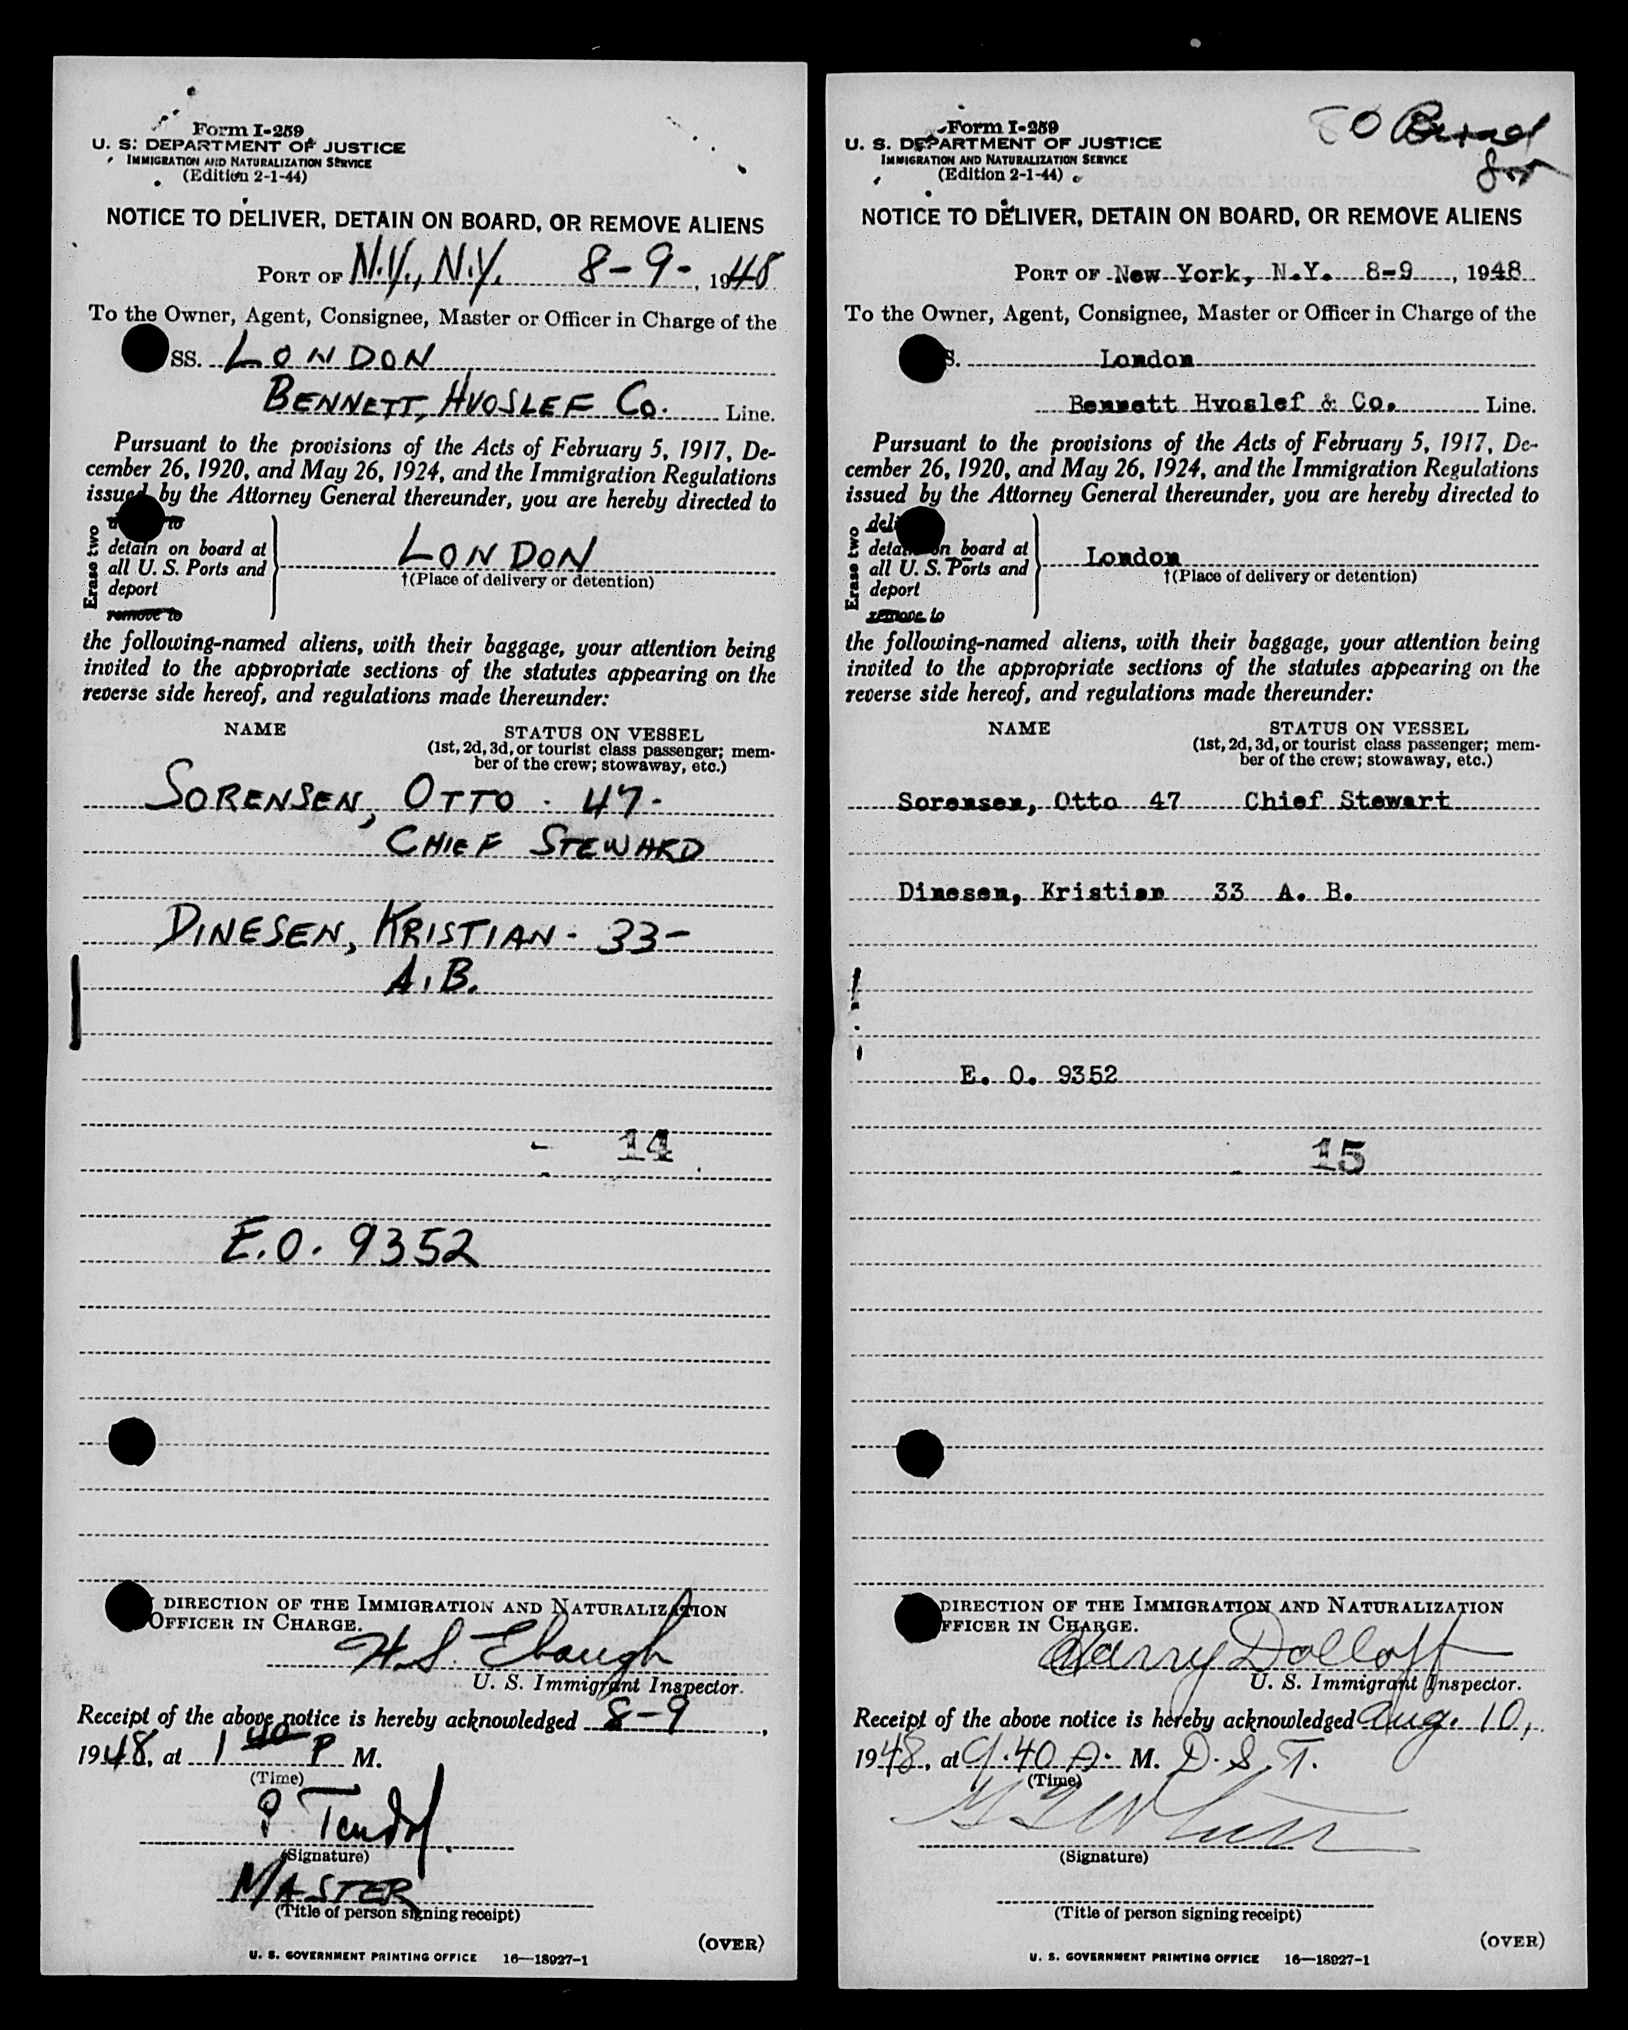 Form I-259
U. S. DEPARTMENT OF JUSTICE
IMMIGRATION AND NATURALIZATION SERVICE
(Edition 2-1-44)
NOTICE TO DELIVER, DETAIN ON BOARD, OR REMOVE ALIENS
PORT OF N.Y., N.Y. 8-9-, 1948
To the Owner, Agent, Consignee, Master or Officer in Charge of the
SS. LONDON
BENNETT, HVOSLEF CO. Line.
Pursuant to the provisions of the Acts of February 5, 1917, De-
cember 26, 1920, and May 26, 1924, and the Immigration Regulations
issued by the Attorney General thereunder, you are hereby directed to
Erase two
to
detain on board at
all U. S. Ports and
deport
remove to
LONDON
†(Place of delivery or detention)
the following-named aliens, with their baggage, your attention being
invited to the appropriate sections of the statutes appearing on the
reverse side hereof, and regulations made thereunder:
NAME STATUS ON VESSEL
(1st, 2d, 3d, or tourist class passenger; mem-
ber of the crew; stowaway, etc.)
SORENSEN, OTTO - 47-
CHIEF STEWARD
DINESEN, KRISTIAN - 33-
A.B.
14
E.O. 9352
DIRECTION OF THE IMMIGRATION AND NATURALIZATION
OFFICER IN CHARGE.
H.S. Ebaugh
U. S. Immigrant Inspector.
Receipt of the above notice is hereby acknowledged 8-9,
1948, at 1 40 P M.
(Time)
P.
(Signature)
MASTER
(Title of person signing receipt)
(OVER)
U. S. GOVERNMENT PRINTING OFFICE 16—18927-1
80
Form I-259
U. S. DEPARTMENT OF JUSTICE
IMMIGRATION AND NATURALIZATION SERVICE
(Edition 2-1-44)
NOTICE TO DELIVER, DETAIN ON BOARD, OR REMOVE ALIENS
PORT OF New York, N.Y. 8-9, 1948
To the Owner, Agent, Consignee, Master or Officer in Charge of the
S. London
Bennett Hvoslef & Co. Line.
Pursuant to the provisions of the Acts of February 5, 1917, De-
cember 26, 1920, and May 26, 1924, and the Immigration Regulations
issued by the Attorney General thereunder, you are hereby directed to
Erase two
deli
detain on board at
all U. S. Ports and
deport
remove to
London
†(Place of delivery or detention)
the following-named aliens, with their baggage, your attention being
invited to the appropriate sections of the statutes appearing on the
reverse side hereof, and regulations made thereunder:
NAME STATUS ON VESSEL
(1st, 2d, 3d, or tourist class passenger; mem-
ber of the crew; stowaway, etc.)
Sorensen, Otto 47 Chief Stewart
Dinesen, Kristian 33 A. B.
E. O. 9352
15
DIRECTION OF THE IMMIGRATION AND NATURALIZATION
FFICER IN CHARGE.
Harry Dolloff
U. S. Immigrant Inspector.
Receipt of the above notice is hereby acknowledged Aug. 10,
1948, at 9.40 A. M. D.S.T.
(Time)
(Signature)
(Title of person signing receipt)
(OVER)
U. S. GOVERNMENT PRINTING OFFICE 16—18927-1